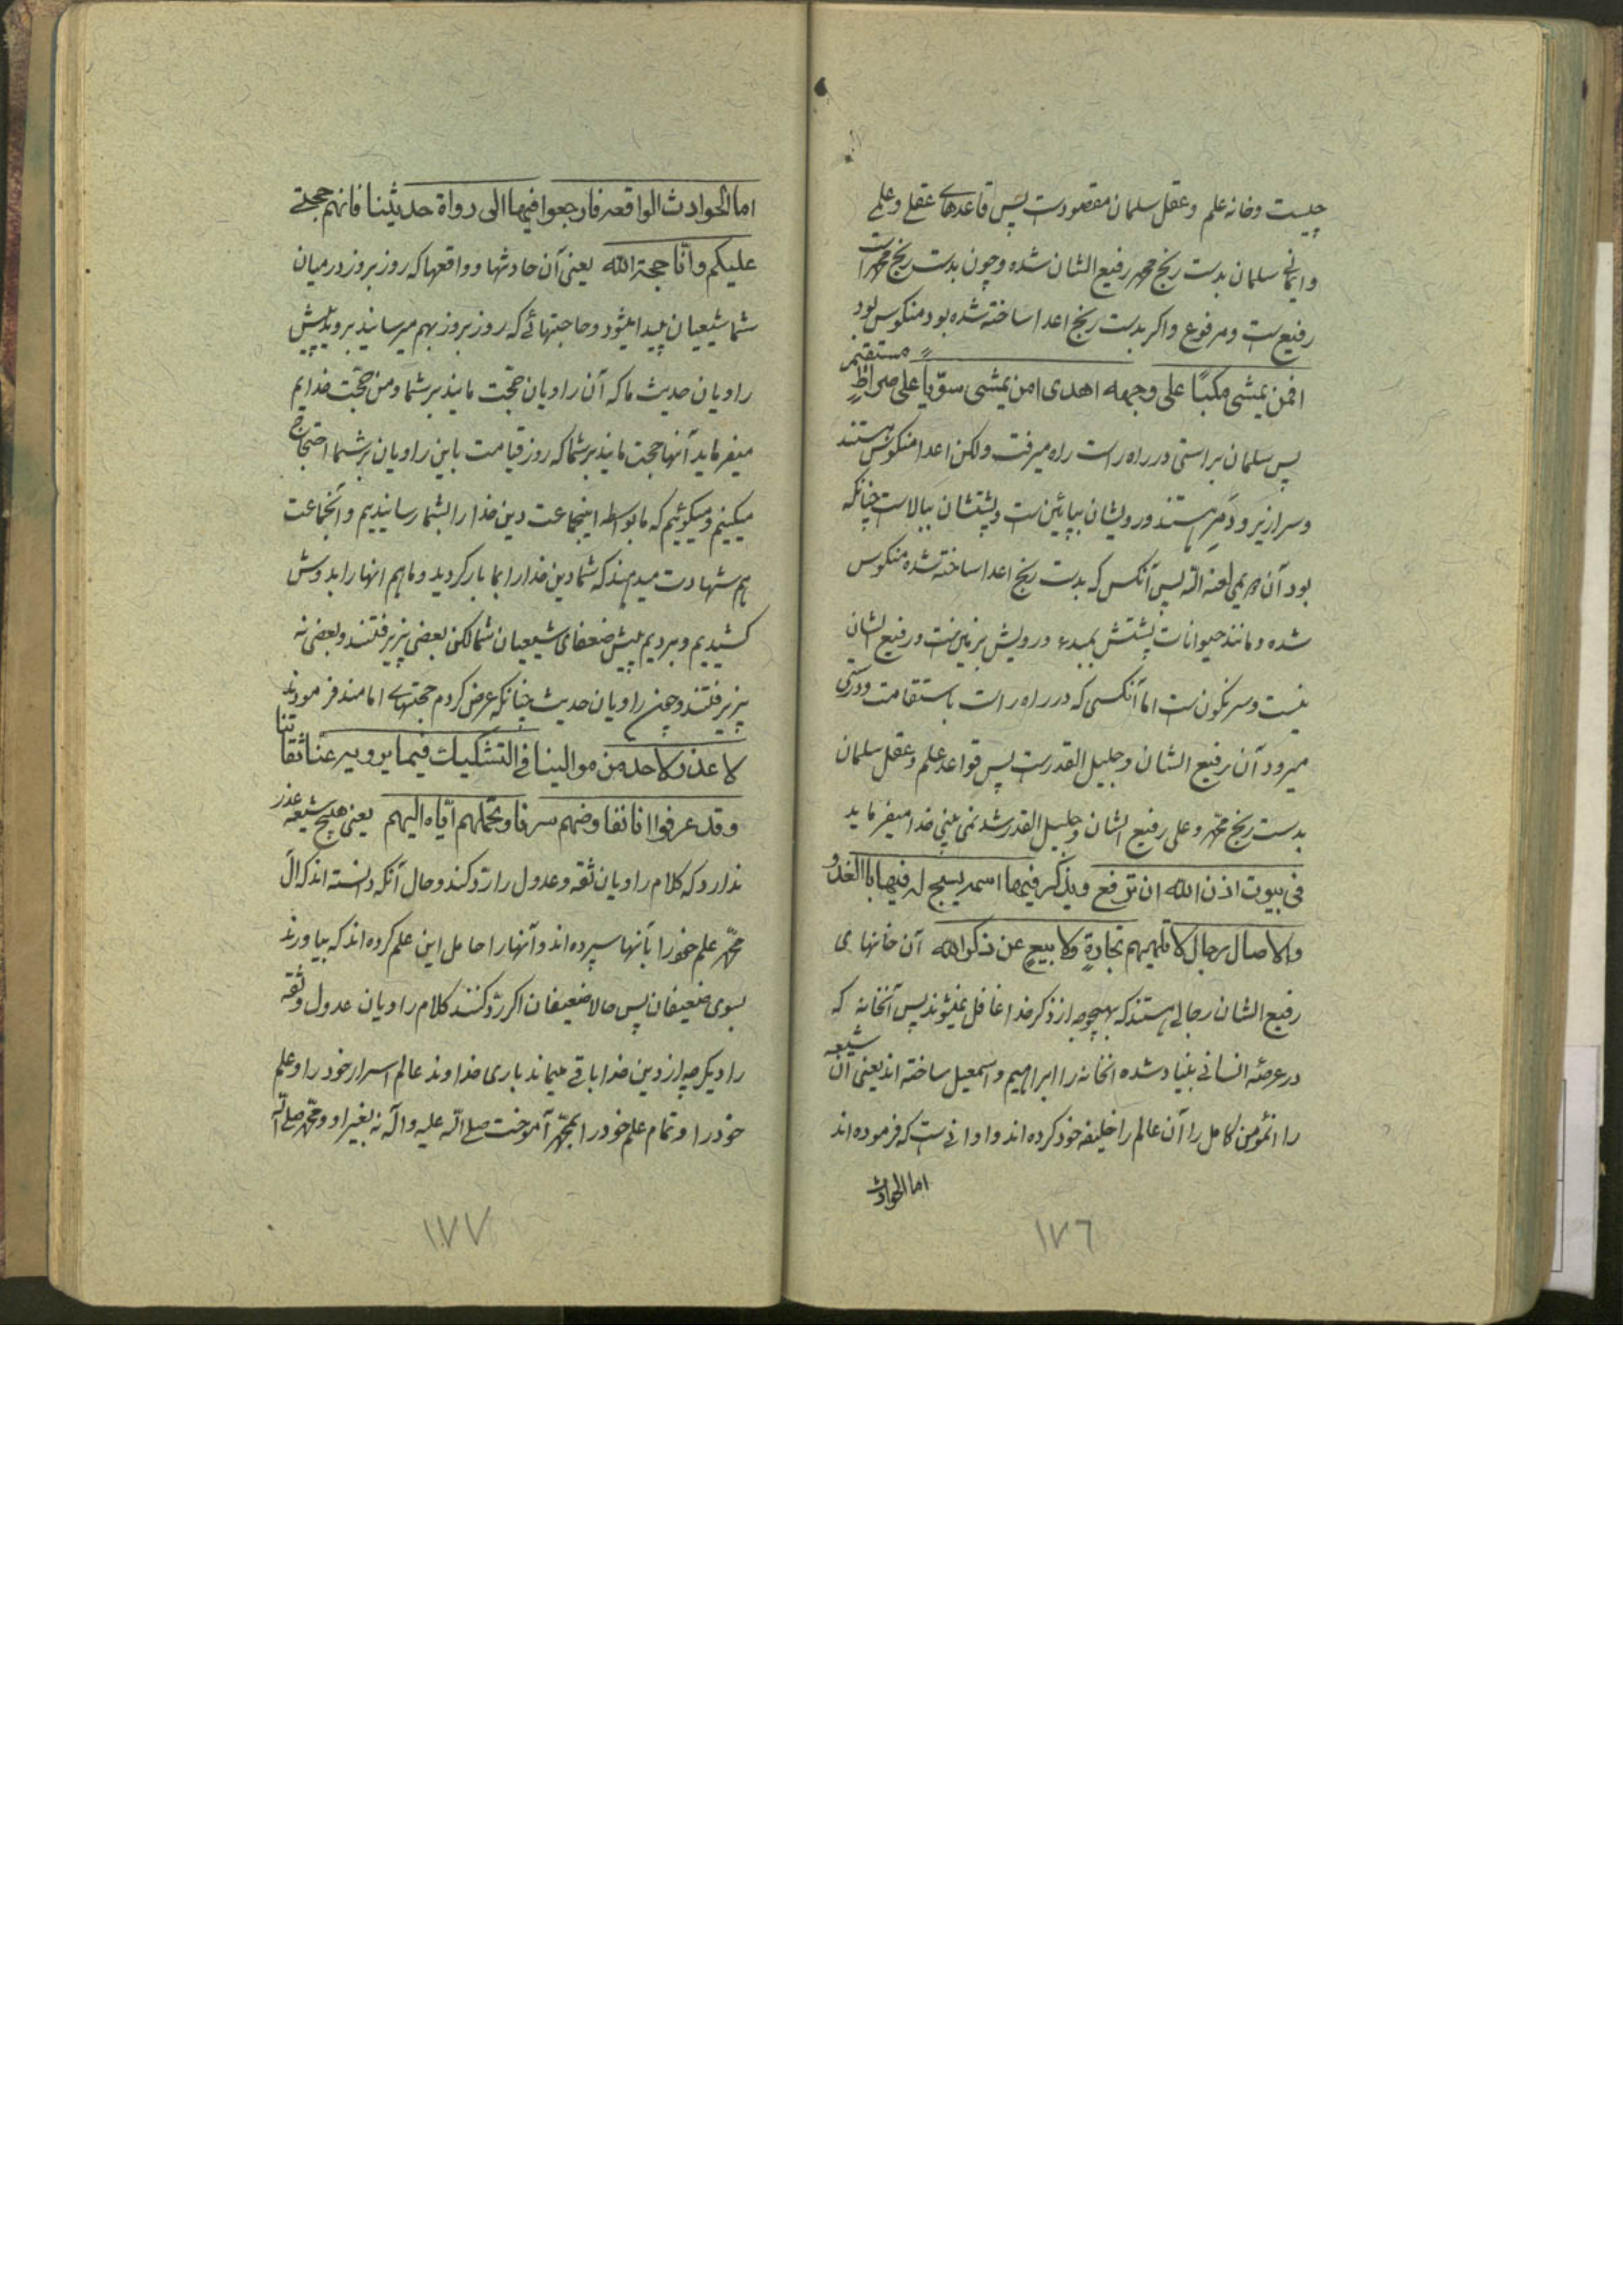 چیست و خانه علم و عقل سلمان مقصودست پس قاعدهای عقلی و علمی
و ایمانی سلمان بدست رنج محمد رفیع الشان شده و چون بدست رنج محمد است
رفیع ست و مرفوع و اگر بدست رنج اعدا ساخته شده بود منکوس بود
افمن یمشی مکبّا علی وجهه اهدی امن یمشی سویّا علی صراطٍ مستقیم
پس سلمان براستی در راه راست راه میرفت ولکن اعدا منکوس هستند
و سرازیر و دَمَر هستند و رویشان بپائین ست و پشتشان ببالاست چنانکه
بود آن لعنه الله پس آنکس که بدست رنج اعدا ساخته شده منکوس
شده و مانند حیوانات پشتش بمبدء و رویش بزمین ست و رفیع الشان
نیست و سرنگون ست اما آنکسی که در راه راست باستقامت و درستی
میرود آن رفیع الشان و جلیل القدرست پس قواعد علم و عقل سلمان
بدست رنج محمد و علی رفیع الشان و جلیل القدر شد نمی بینی خدا میفرماید
فی بیوت اذن الله ان ترفع ویذکر فیها اسمه یسبح له فیها بالغدو
والاصال رجال لا تلهیهم تجارةٍ ولا بیعٍ عن ذکرالله آن خانهای
رفیع الشان رجالی هستند که بهیچوجه از ذکر خدا غافل نمیشوند پس آنخانه که
در عرصه انسانی بنیاد شده انخانه را ابراهیم و اسمعیل ساخته اند یعنی آن شیعه
را انمؤمن کامل را آن عالم را خلیفه خود کرده اند و او انی ست که فرموده اند
اما الحوادث
۱۷۶
اما الحوادث الواقعه فارجعوا فیها الی رواة حدیثنا فانهم حجتی
علیکم وانّا حجة الله یعنی آن حادثها و واقعها که روز بروز در میان
شما شیعیان پیدا میشود و حاجتهائی که روز بروز بهم میرسانید بروید پیش
راویان حدیث ما که آن راویان حجّت مایند بر شما و من حجّت خدایم
میفرماید آنها حجت مایند بر شما که روز قیامت باین راویان بر شما احتجاج
میکنیم و میگوئیم که ما بواسطه اینجماعت دین خدا را بشما رسانیدیم و آنجماعت
هم شهادت میدهند که شما دین خدا را بما بار کردید و ما هم انها را بدوش
کشیدیم و بردیم پیش ضعفای شیعیان شما لکن بعضی پذیرفتند و بعضی نه
پذیرفتند و چنین راویان حدیث چنانکه عرض کردم حجتهای امامند فرمودند
لا عذر لاحد من موالینا فی التشکیک فیما یرویه عنّا ثقاتنا
وقد عرفوا انا نفاوضهم سرنا ونحملهم ایّاه الیهم یعنی هیچ شیعه عذر
ندارد که کلام راویان ثقه و عدول را ردّ کند و حال آنکه دانسته اند که ال
محمّد علم خود را بآنها سپرده اند و آنها را حامل این علم کرده اند که بیاورند
بسوی ضعیفان پس حالا ضعیفان اگر ردّ کنند کلام راویان عدول و ثقه
را دیگر چه از دین خدا باقی میماند باری خداوند عالم اسرار خود را و علم
خود را و تمام علم خود را بمحمّد آموخت صلی الله علیه واله نه بغیر او و محمّد صلی الله
۱۷۷